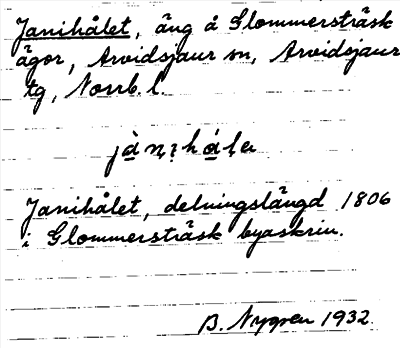 Janihålet, äng å Glommersträsk
ägor, Arvidsjaur sn, Arvidsjaur
tg, Norrb. l.
Janihålet, delningslängd 1806
i Glommersträsk byaskrin.
B. Nygren 1932.